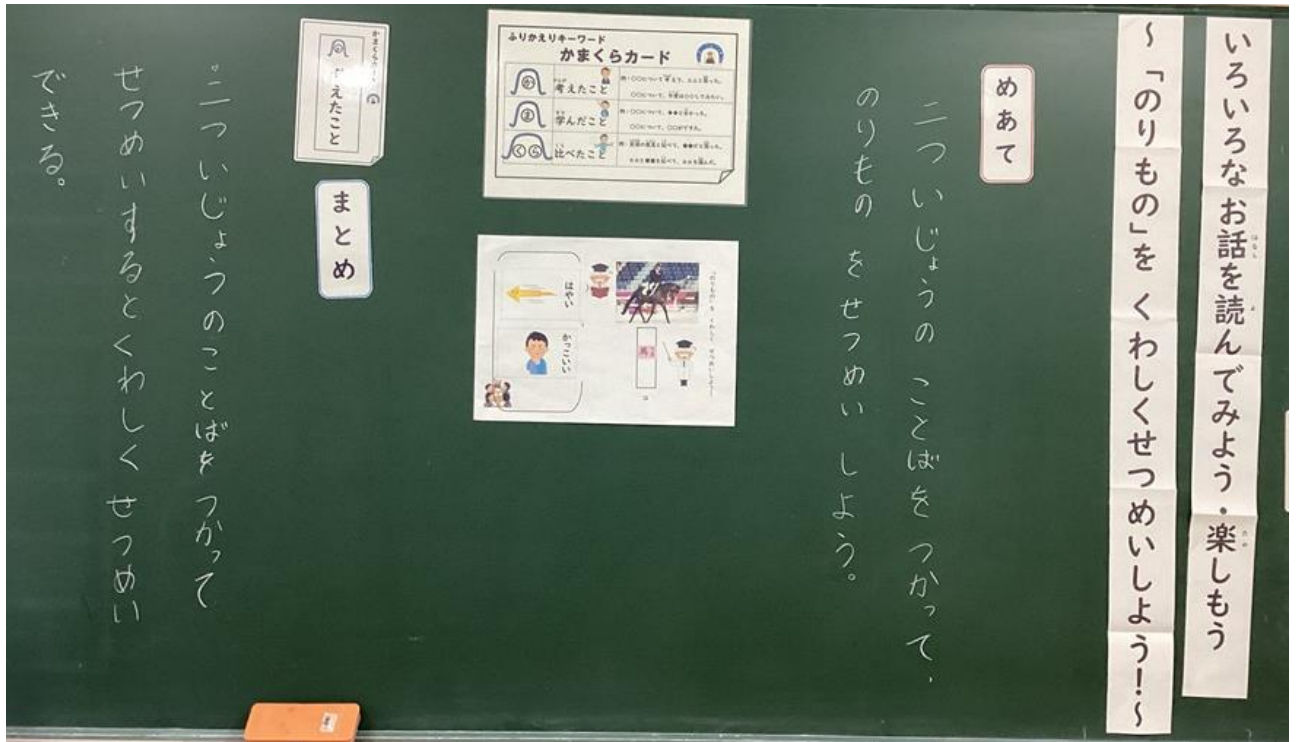 いろいろなお話を読んでみよう・楽しもう
～「のりもの」を くわしくせつめいしよう！～
めあて
二ついじょうの ことばを つかって、
のりもの をせつめい しよう。
ふりかえりキーワード
かまくらカード
か
考えたこと
ま
学んだこと
くら
比べたこと
「のりもの」を くわしく せつめいしよう！
馬
はやい
かっこいい
まとめ
かまくらカード
えたこと
二ついじょうのことばをつかって
せつめいするとくわしく せつめい
できる。